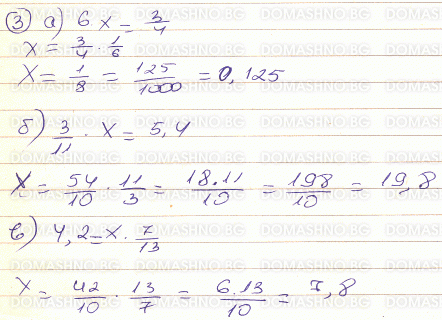 ③ а) 6x = 3/4
x = 3/4 · 1/6
x = 1/8 = 125/1000 = 0,125
б) 3/11 · x = 5,4
x = 54/10 · 11/3 = 18.11/10 = 198/10 = 19,8
в) 4,2 = x · 7/13
x = 42/10 · 13/7 = 6.13/10 = 7,8